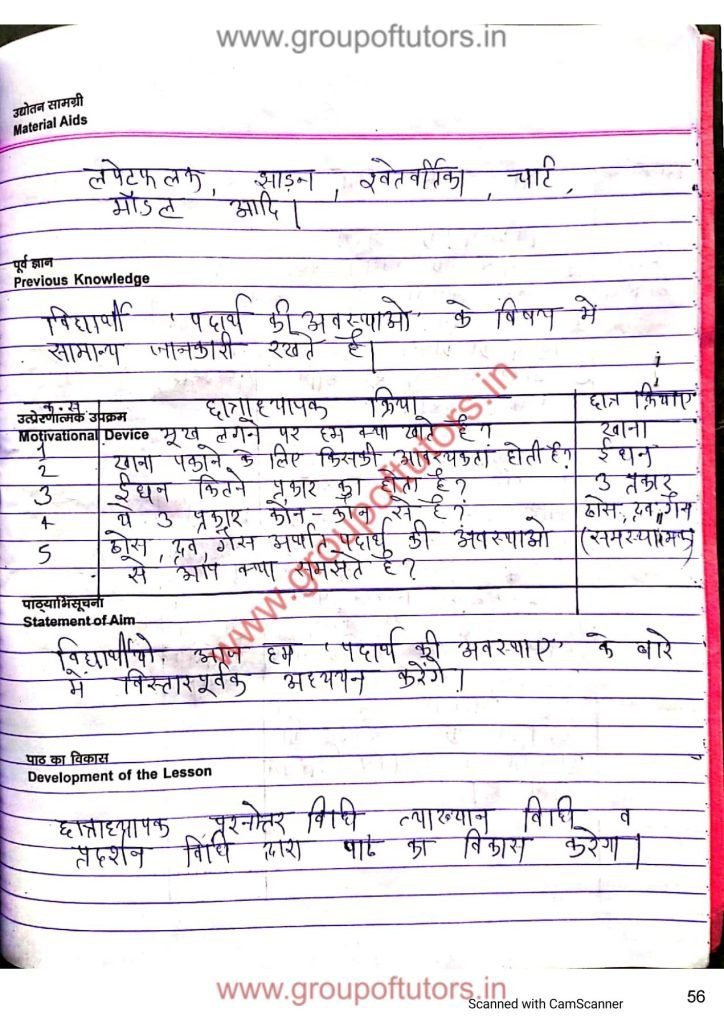 www.groupoftutors.in
उद्योतन सामग्री
Material Aids
लपेटफलक, झाड़न, श्वेतवर्तिका, चार्ट,
मॉडल आदि।
पूर्व ज्ञान
Previous Knowledge
विद्यार्थी 'पदार्थ की अवस्थाओ' के विषय मे
सामान्य जानकारी रखते है।
क्र.स छात्राध्यापक क्रिया छात्र क्रियाए
उत्प्रेरणात्मक उपक्रम
Motivational Device
1 भूख लगने पर हम क्या खाते है? खाना
2 खाना पकाने के लिए किसकी आवश्यकता होती है? ईंधन
3 ईंधन कितने प्रकार का होता है? 3 प्रकार
4 ये 3 प्रकार कौन-कौन से है? ठोस, द्रव, गैस
5 ठोस, द्रव, गैस अर्थात पदार्थ की अवस्थाओ (समस्यात्मक)
से आप क्या समझते है?
पाठ्याभिसूचना
Statement of Aim
विद्यार्थीयो आज हम 'पदार्थ की अवस्थाए' के बारे
में विस्तारपूर्वक अध्ययन करेंगे।
पाठ का विकास
Development of the Lesson
छात्राध्यापक प्रश्नोत्तर विधि व्याख्यान विधि व
प्रदर्शन विधि द्वारा पाठ का विकास करेगा।
www.groupoftutors.in
www.groupoftutors.in
Scanned with CamScanner
56